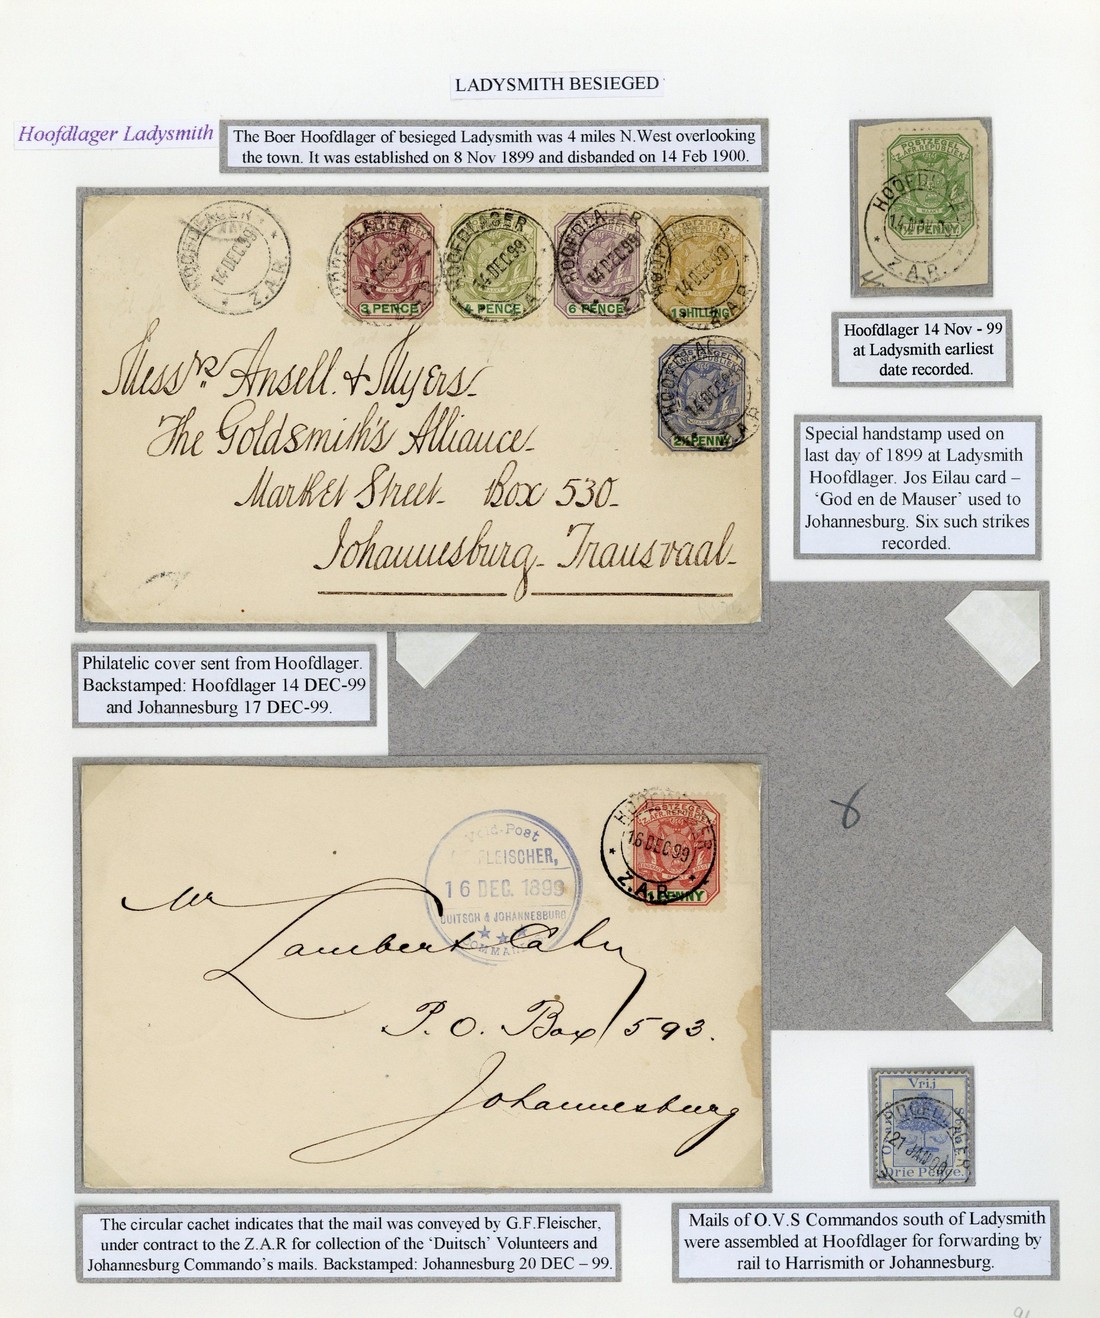 LADYSMITH BESIEGED
Hoofdlager Ladysmith
The Boer Hoofdlager of besieged Ladysmith was 4 miles N.West overlooking
the town. It was established on 8 Nov 1899 and disbanded on 14 Feb 1900.
HOOFDLAGER
14 DEC 99
Z.A.R.
3 PENCE
4 PENCE
6 PENCE
1 SHILLING
2½ PENNY
Messrs Ansell & Myers
The Goldsmith's Alliance
Market Street Box 530
Johannesburg Transvaal
POSTZEGEL
Z.AFR.REPUBLIEK
PENNY
Z.A.R.
Hoofdlager 14 Nov - 99
at Ladysmith earliest
date recorded.
Special handstamp used on
last day of 1899 at Ladysmith
Hoofdlager. Jos Eilau card –
'God en de Mauser' used to
Johannesburg. Six such strikes
recorded.
Philatelic cover sent from Hoofdlager.
Backstamped: Hoofdlager 14 DEC-99
and Johannesburg 17 DEC-99.
Veld-Post
FLEISCHER,
16 DEC. 1899
DUITSCH & JOHANNESBURG
HOOFDLAGER
16 DEC 99
Z.A.R.
1 PENNY
Mr
Lambert Cahn
P.O. Box 593.
Johannesburg
8
Vrij
HOOFDLAGER
21 JAN 00
Drie Pence.
The circular cachet indicates that the mail was conveyed by G.F.Fleischer,
under contract to the Z.A.R for collection of the 'Duitsch' Volunteers and
Johannesburg Commando's mails. Backstamped: Johannesburg 20 DEC – 99.
Mails of O.V.S Commandos south of Ladysmith
were assembled at Hoofdlager for forwarding by
rail to Harrismith or Johannesburg.